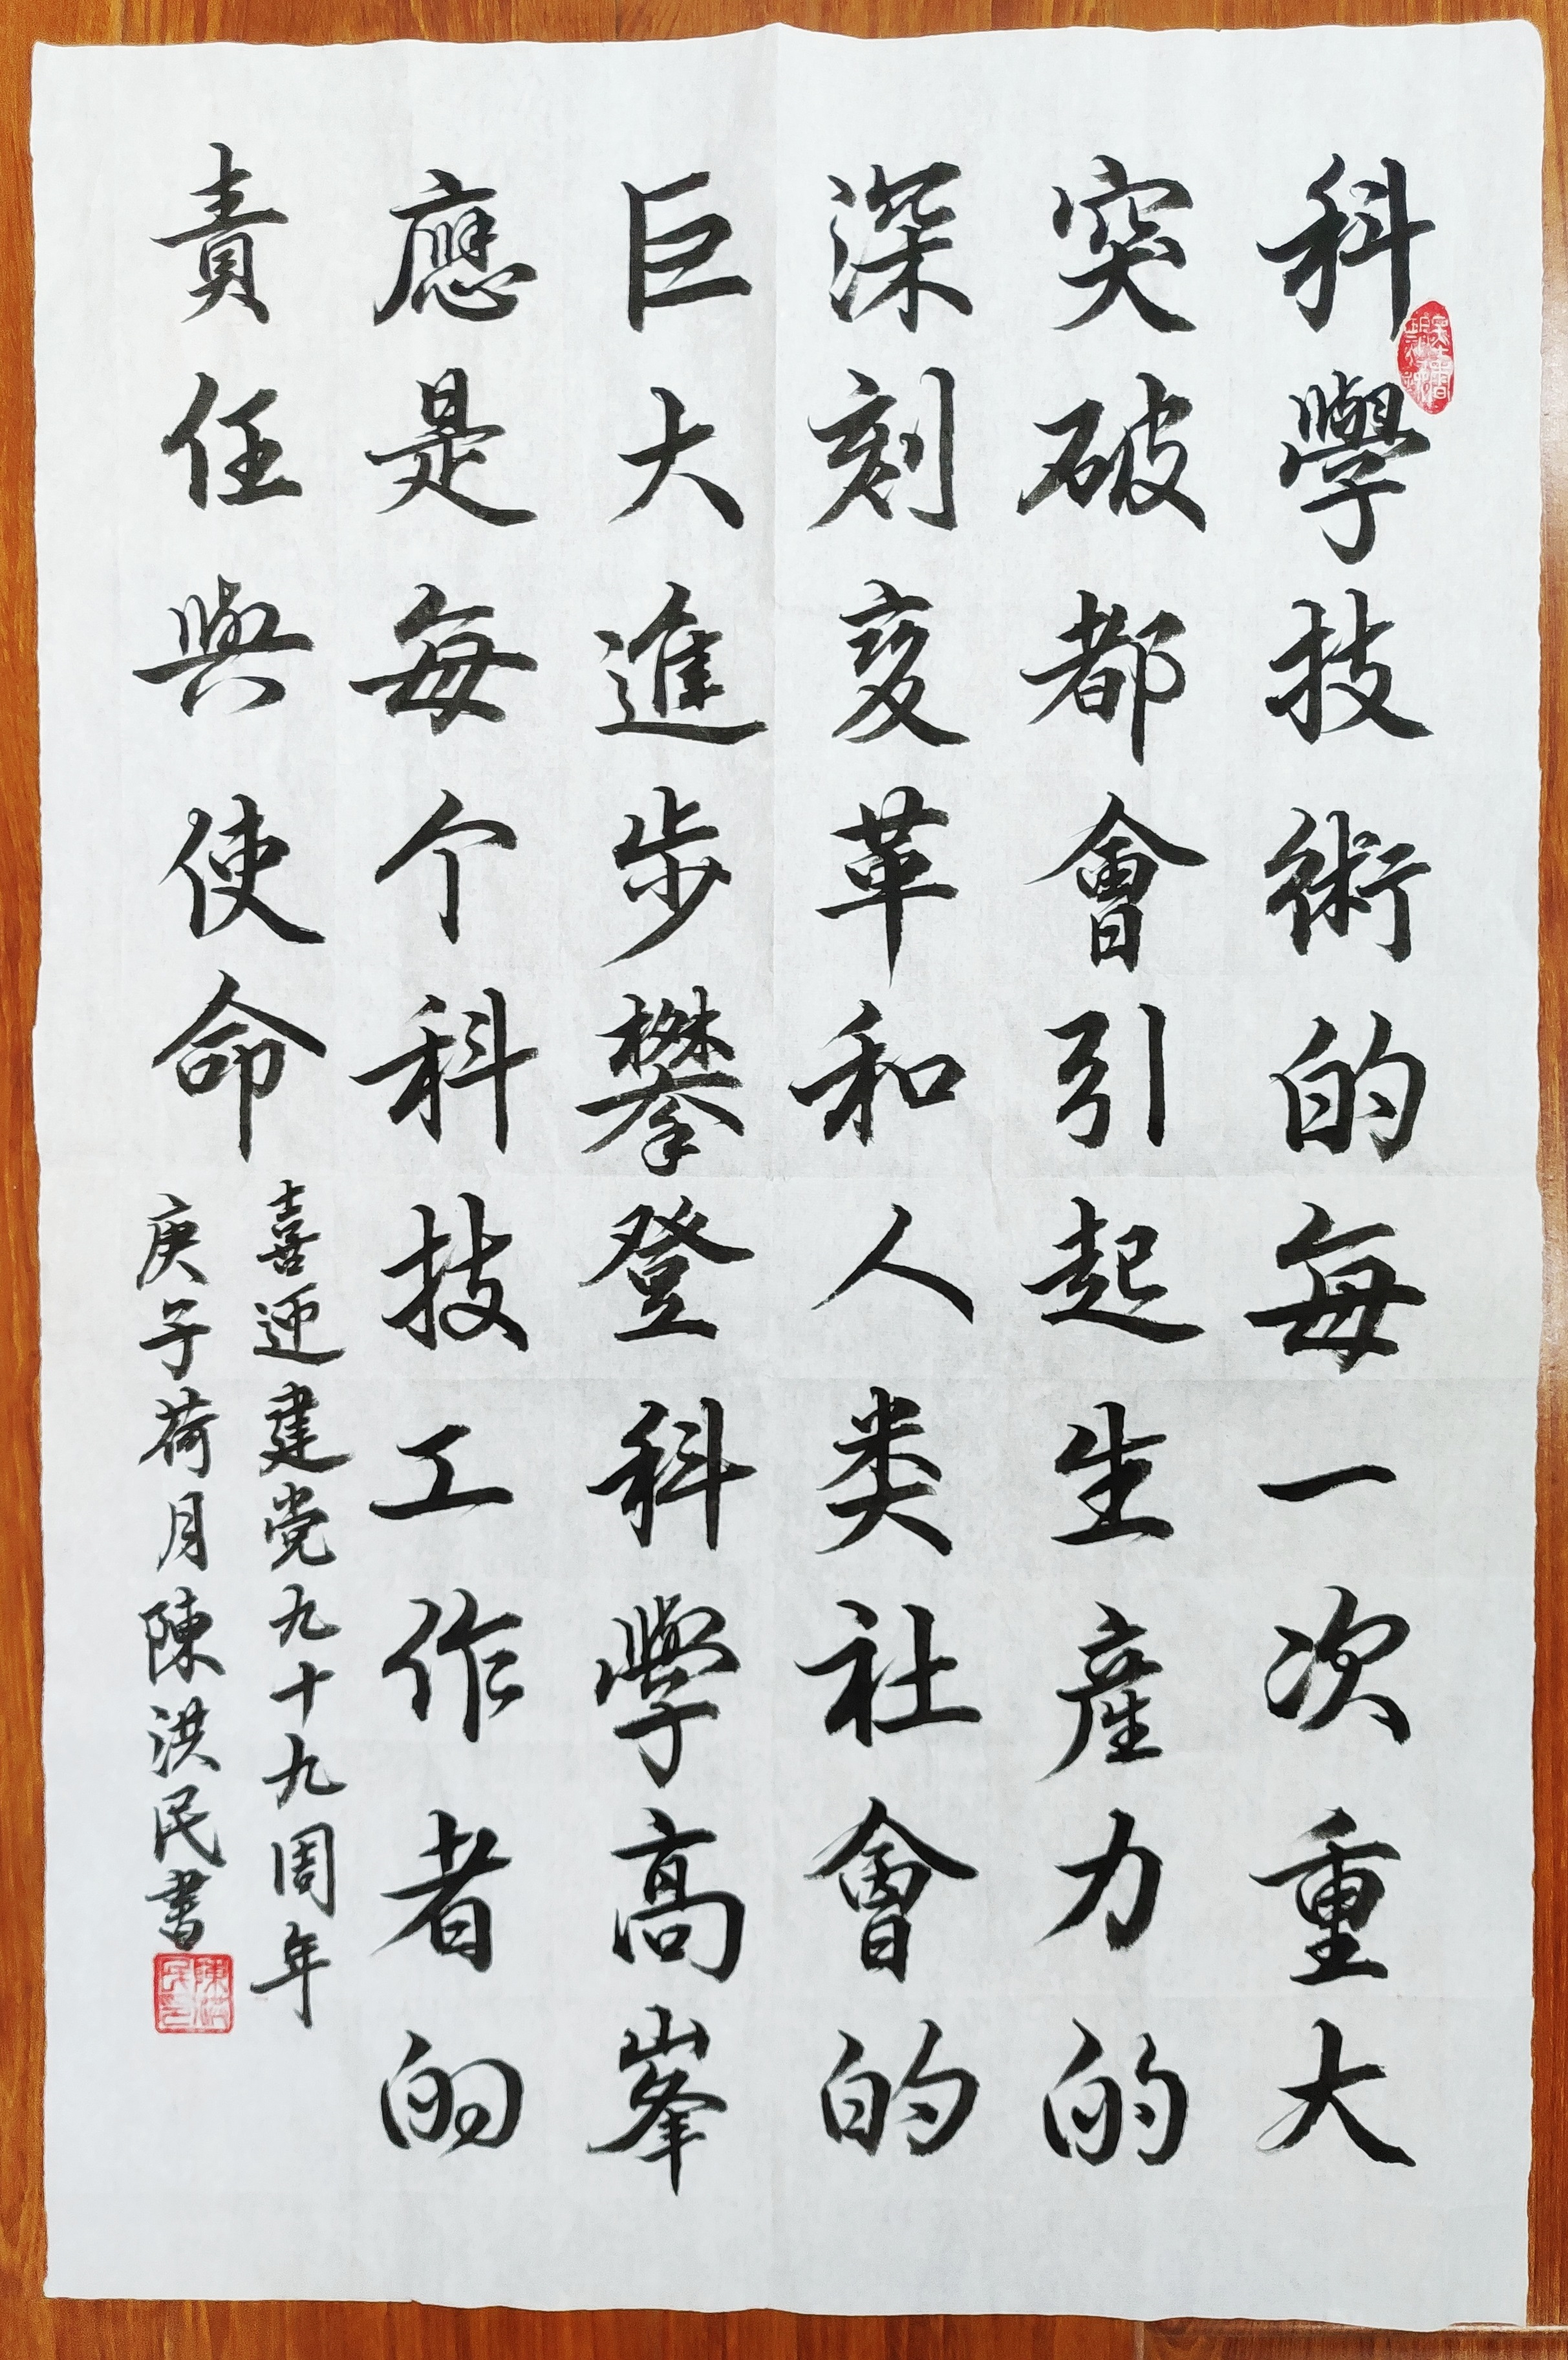 科學技術的每一次重大
突破都會引起生產力的
深刻変革和人类社會的
巨大進步攀登科學高峯
應是每个科技工作者的
責任與使命
喜迎建党九十九周年
庚子荷月陳洪民書
陳洪民印